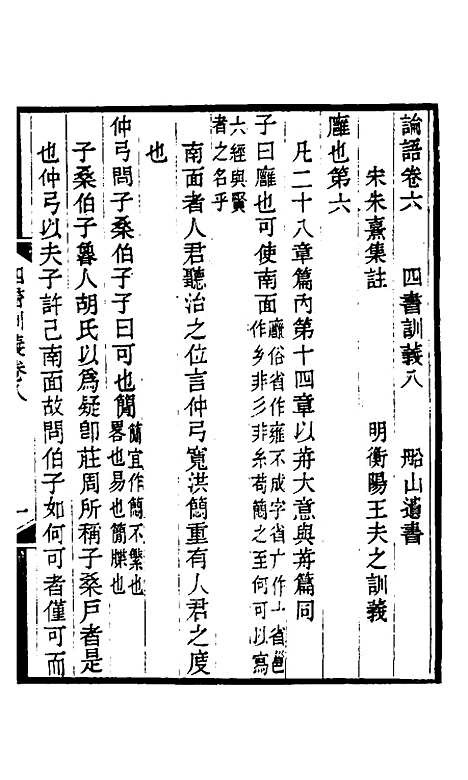 論語卷六 四書訓義八 船山遺書
宋朱熹集註 明衡陽王夫之訓義
廱也第六
凡二十八章篇內第十四章以歬大意與歬篇同
子曰廱也可使南面廱俗省作雍不成字省广作亠省邕
作乡非彡非糸苟簡之至何可以寫
六經與賢
者之名乎
南面者人君聽治之位言仲弓寬洪簡重有人君之度
也
仲弓問子桑伯子子曰可也簡簡宜作簡不繁也
畧也易也簡牒也
子桑伯子魯人胡氏以爲疑卽莊周所稱子桑戶者是
也仲弓以夫子許己南面故問伯子如何可者僅可而
四書訓義卷八 一